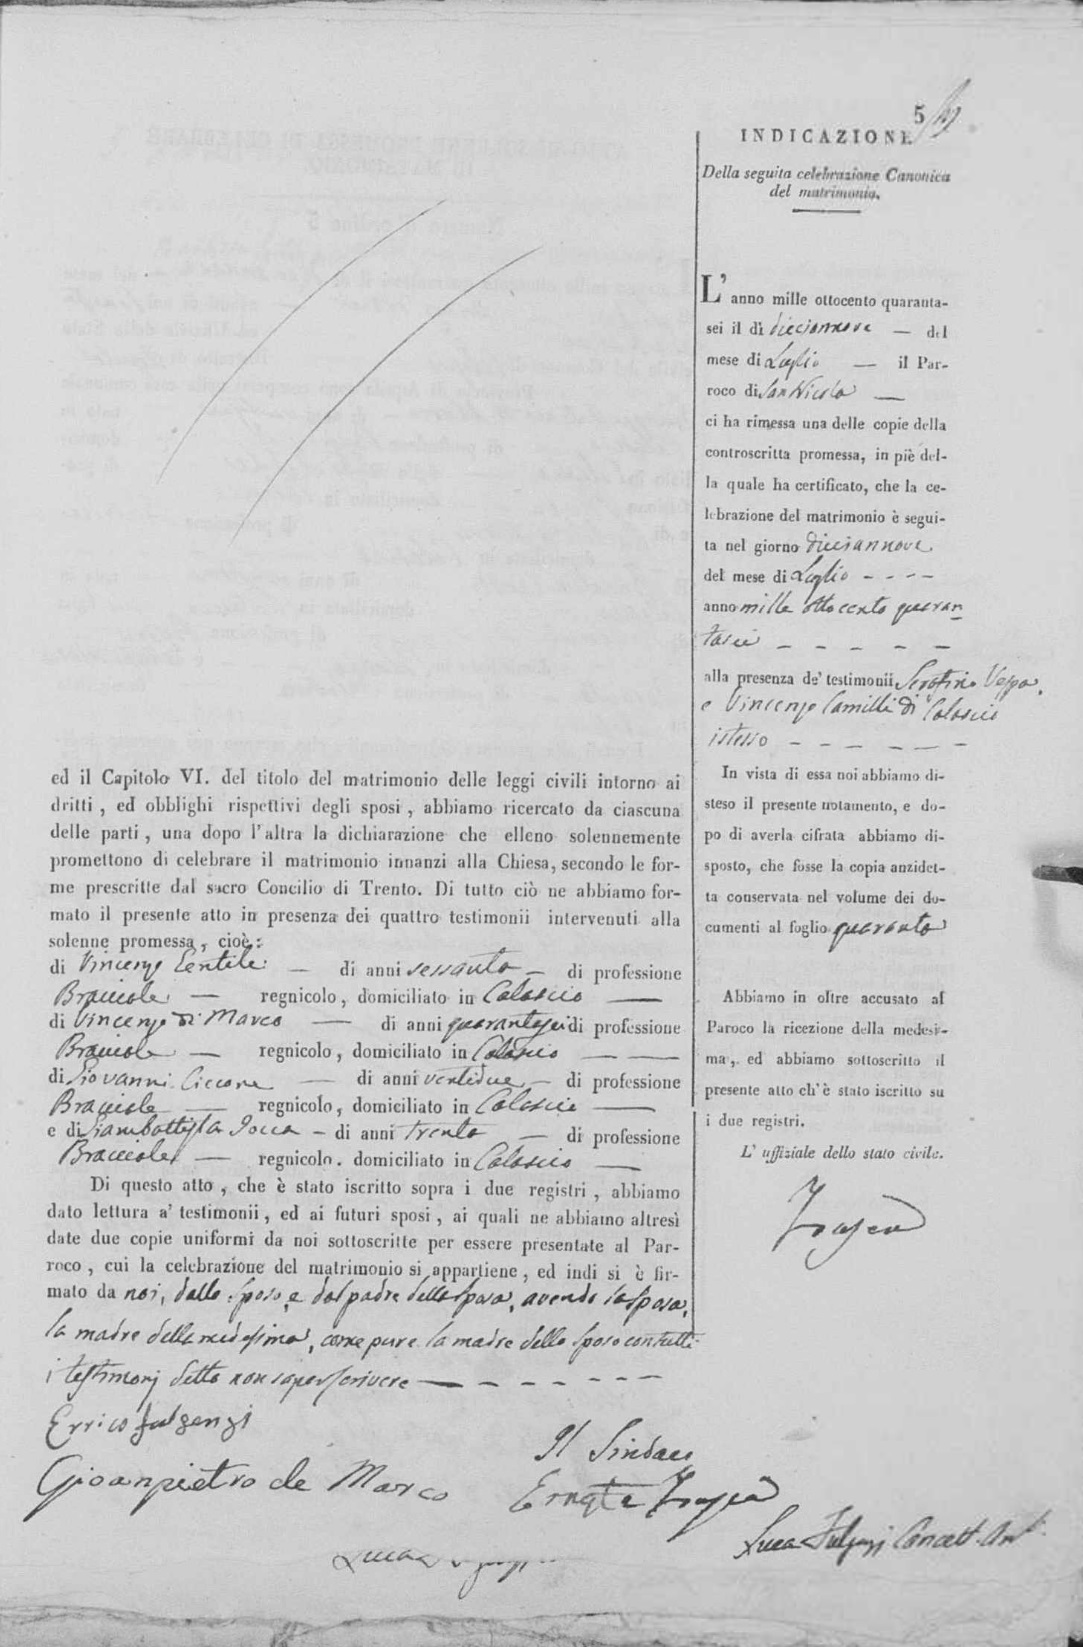 5
INDICAZIONE
Della seguita celebrazione Canonica
del matrimonio.
L'anno mille ottocento quaranta-
sei il dì diciannove — del
mese di Luglio — il Par-
roco di San Nicola —
ci ha rimessa una delle copie della
controscritta promessa, in piè del-
la quale ha certificato, che la ce-
lebrazione del matrimonio è segui-
ta nel giorno diciannove
del mese di Luglio - - - -
anno mille ottocento quaran
tasei - - - - -
alla presenza de' testimonii Serafino Vespa
e Vincenzo Camilli di Colascio
istesso - - - - - -
In vista di essa noi abbiamo di-
steso il presente notamento, e do-
po di averla cifrata abbiamo di-
sposto, che fosse la copia anzidet-
ta conservata nel volume dei do-
cumenti al foglio quaranta
Abbiamo in oltre accusato al
Paroco la ricezione della medesi-
ma, ed abbiamo sottoscritto il
presente atto ch'è stato iscritto su
i due registri.
L' uffiziale dello stato civile.
ed il Capitolo VI. del titolo del matrimonio delle leggi civili intorno ai
dritti, ed obblighi rispettivi degli sposi, abbiamo ricercato da ciascuna
delle parti, una dopo l'altra la dichiarazione che elleno solennemente
promettono di celebrare il matrimonio innanzi alla Chiesa, secondo le for-
me prescritte dal sacro Concilio di Trento. Di tutto ciò ne abbiamo for-
mato il presente atto in presenza dei quattro testimonii intervenuti alla
solenne promessa, cioè:
di Vincenzo Gentile — di anni sessanta — di professione
Bracciale — regnicolo, domiciliato in Colascio —
di Vincenzo di Marco — di anni quarantasei di professione
Bracciale — regnicolo, domiciliato in Colascio — —
di Giovanni Ciccone — di anni ventidue — di professione
Bracciale — regnicolo, domiciliato in Colascio —
e di Giambattista Iocca — di anni trenta — di professione
Bracciale — regnicolo. domiciliato in Colascio —
Di questo atto, che è stato iscritto sopra i due registri, abbiamo
dato lettura a' testimonii, ed ai futuri sposi, ai quali ne abbiamo altresì
date due copie uniformi da noi sottoscritte per essere presentate al Par-
roco, cui la celebrazione del matrimonio si appartiene, ed indi si è fir-
mato da noi, dallo sposo, e dal padre della sposa, avendo la sposa,
la madre della medesima, come pure la madre dello sposo con tutti
i testimonj detto non saper scrivere — - - - - - -
Errico Fulgenzi
Il Sindaco
Gioanpietro de Marco
Luca Fulgenzi